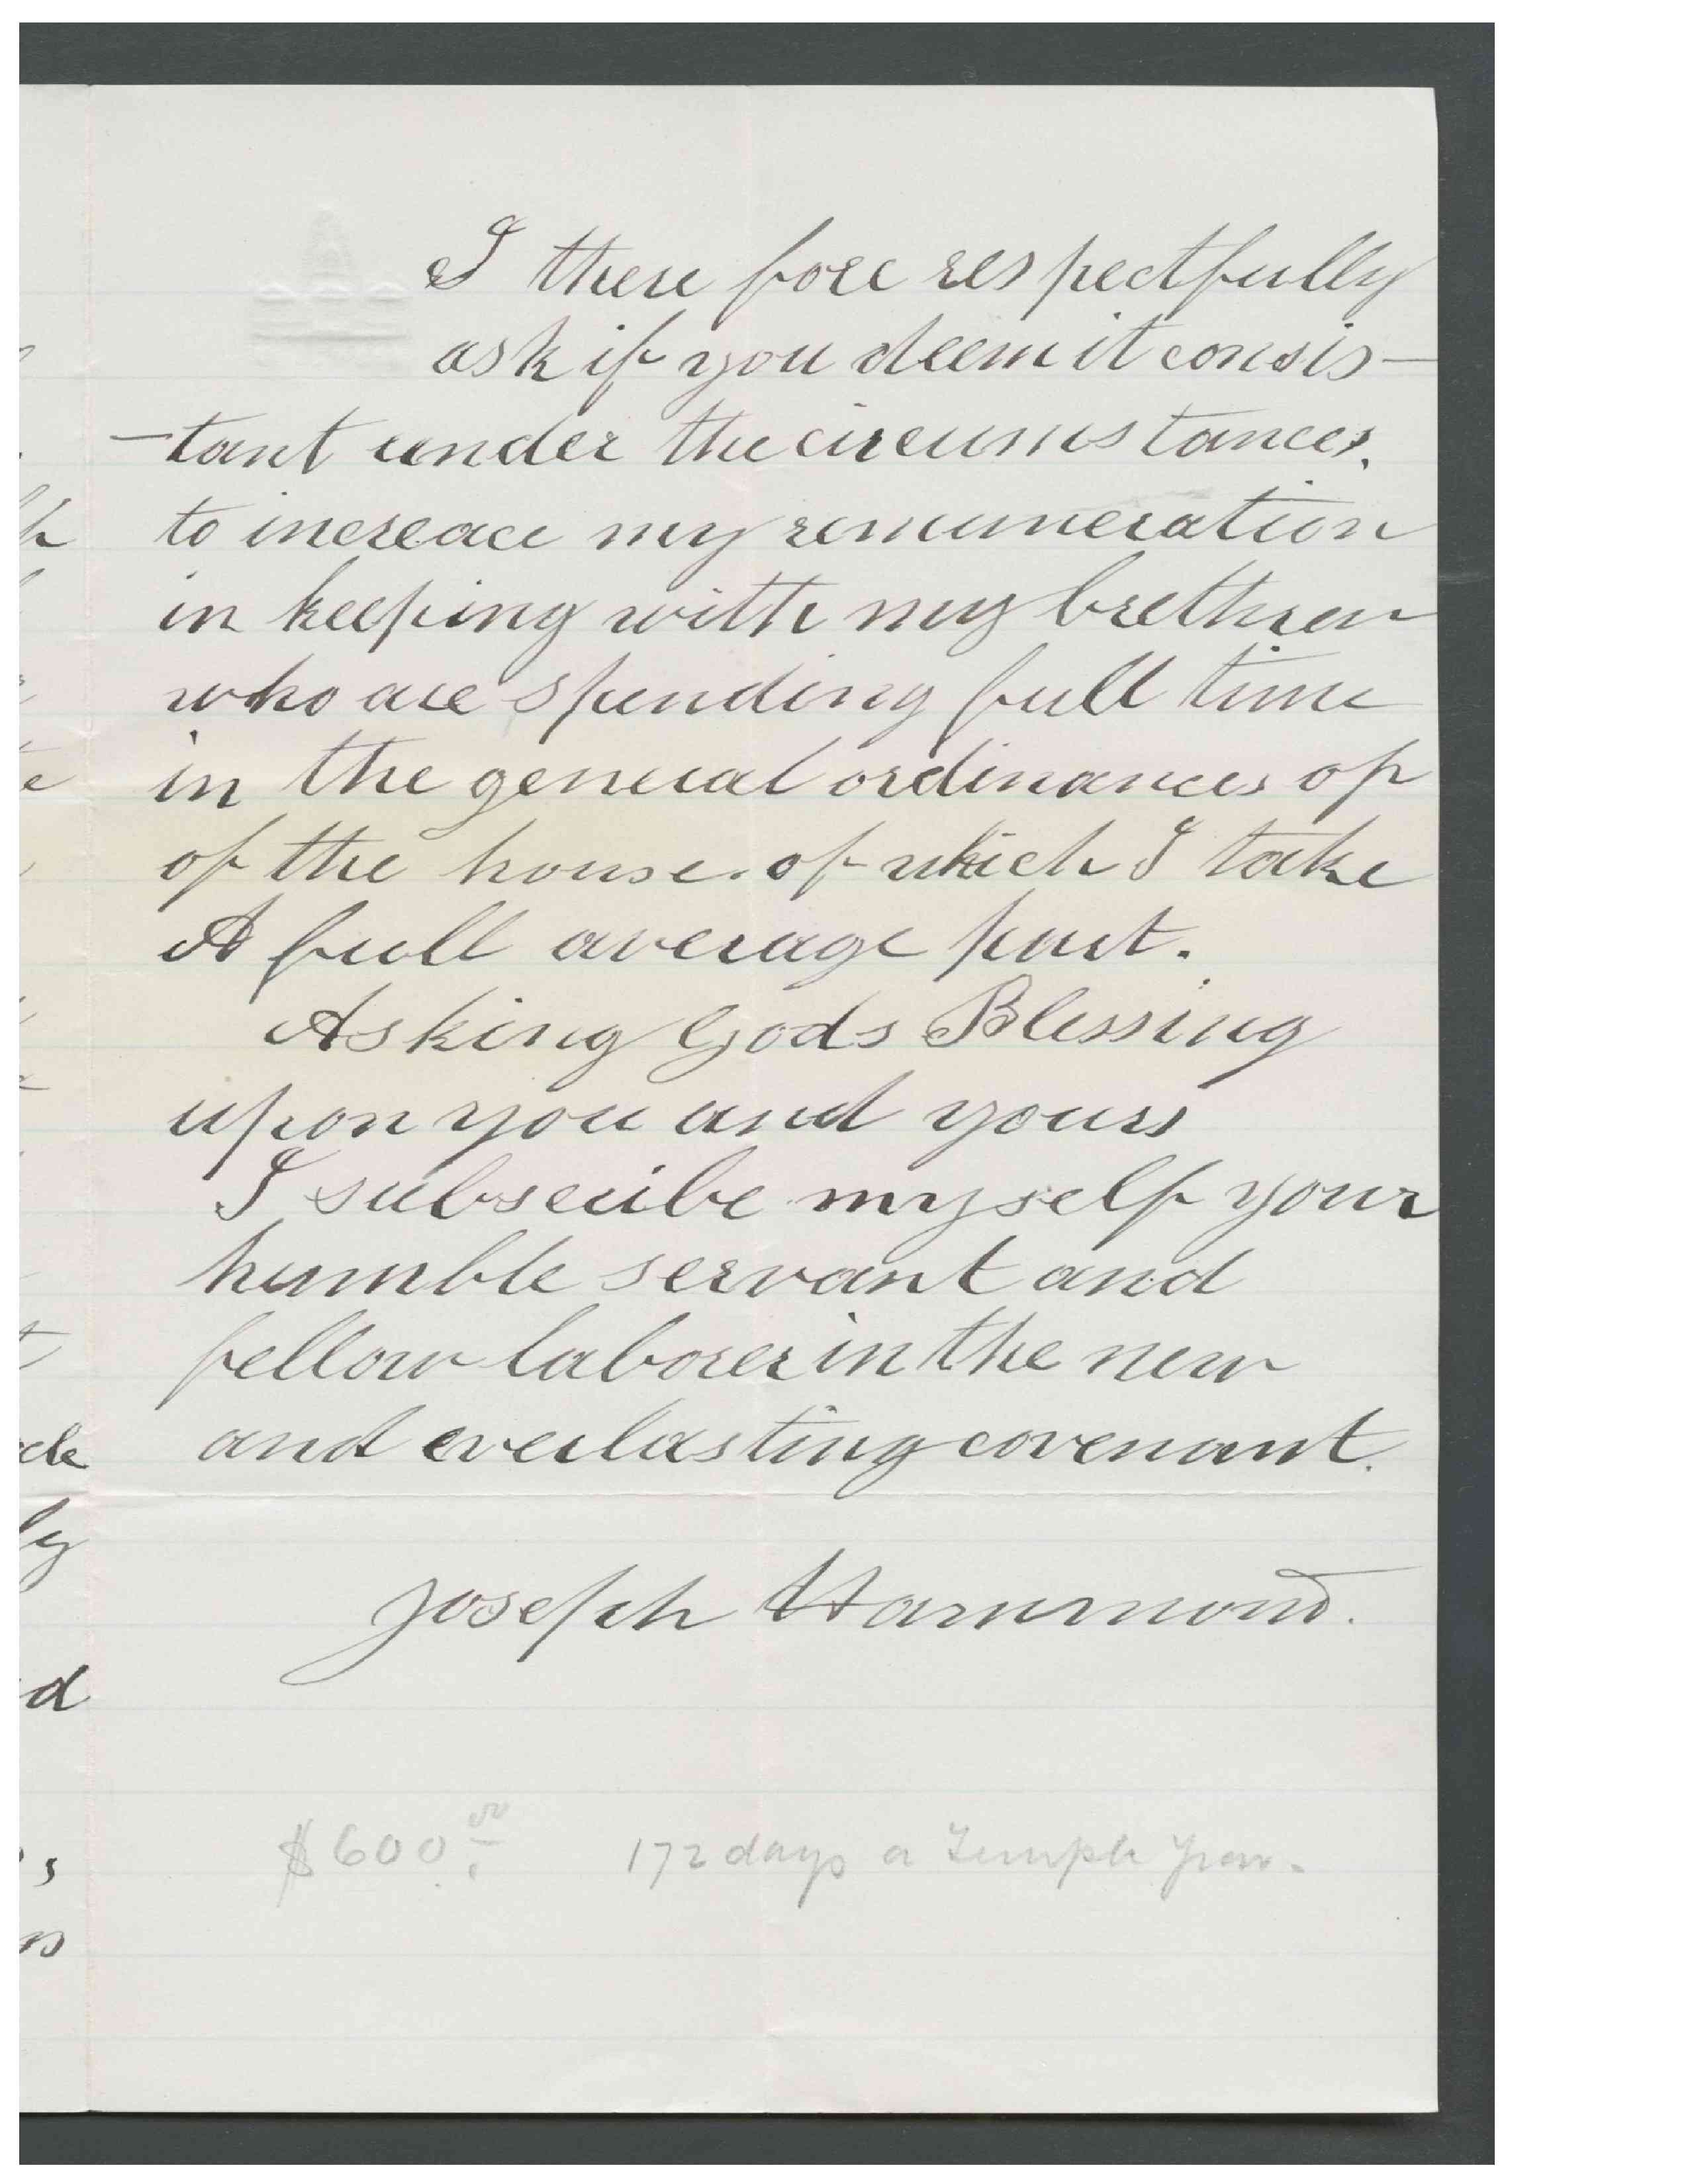 I there fore respectfully
ask if you deem it consis-
-tant under the circumstances.
to increace my remuneration
in keeping with my brethren
who are spending full time
in the general ordinances of
of the house. of which I take
A full average part.
Asking Gods Blessing
upon you and yours
I subscribe myself your
humble servant and
fellow laborer in the new
and everlasting covenant.
Joseph Hammond.
$600.00 172 days a Temple year.